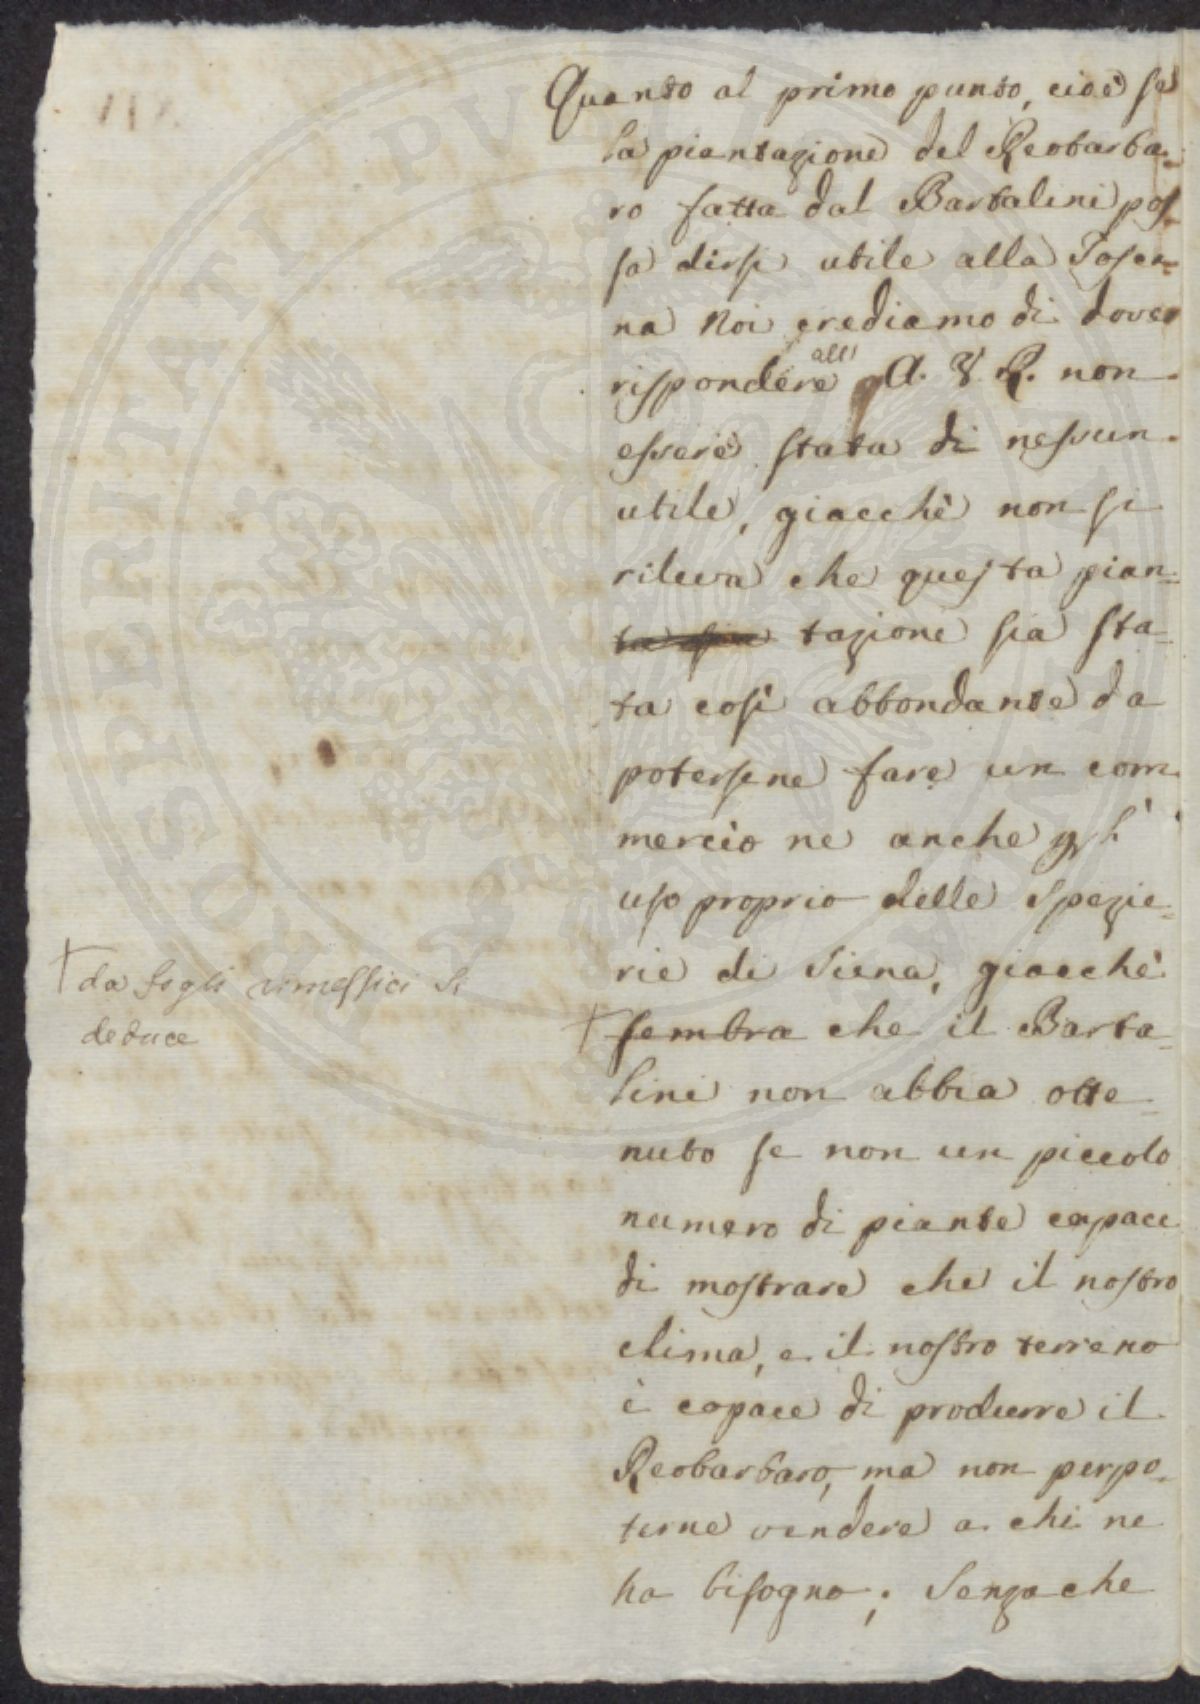 Quanto al primo punto, cioè se
la piantazione del Reobarba-
ro fatta dal Bartalini pos-
sa dirsi utile alla Tosca-
na Noi crediamo di dover
rispondere all' A. V. R. non
essere stata di nessun
utile, giacchè non si
rileva che questa pian-
ta sia tazione sia sta-
ta così abbondante da
potersene fare un com
mercio ne anche p l'
uso proprio delle Spezie-
rie di Siena, giacchè
† sembra che il Barta-
lini non abbia otte-
nuto se non un piccolo
numero di piante capace
di mostrare che il nostro
clima, e il nostro terreno
è capace di produrre il
Reobarbaro, ma non per po-
terne vendere a chi ne
ha bisogno; Senza che
† da fogli rimessici si
deduce
PROSPERITATI PVBLICAE